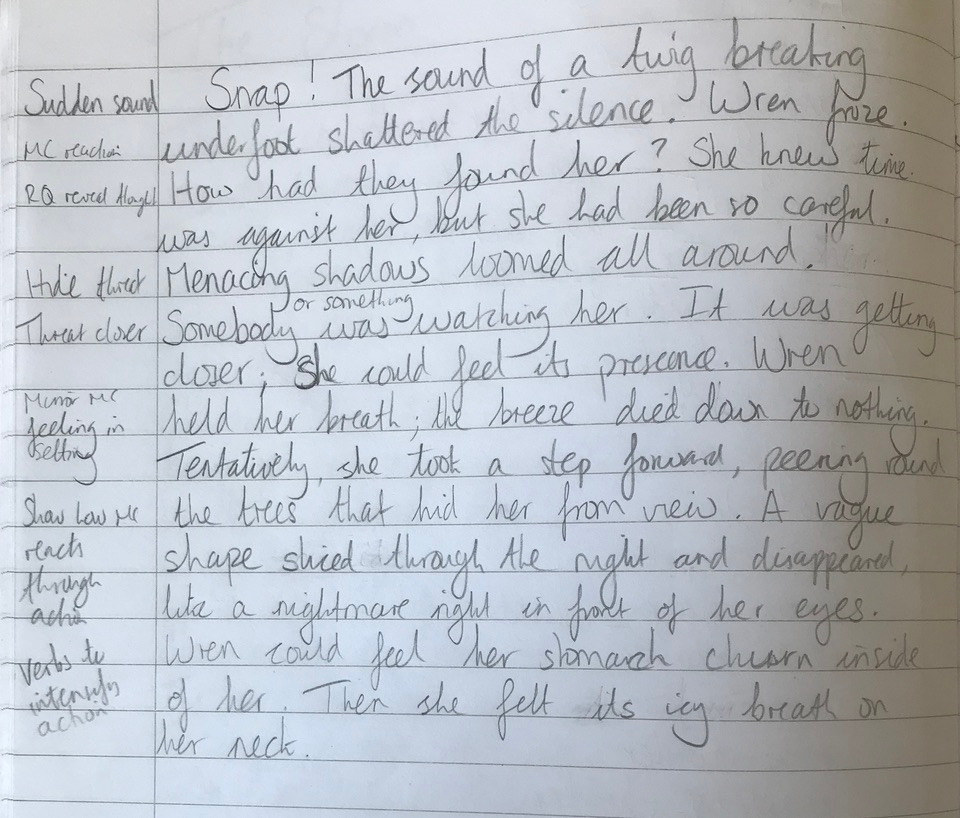 Snap! The sound of a twig breaking
Sudden sound
underfoot shattered the silence. Wren froze.
MC reaction
How had they found her? She knew time
RQ reveal thought
was against her, but she had been so careful.
Hide threat Menacing shadows loomed all around.
or something
Threat closer Somebody was watching her. It was getting
closer; She could feel its presence. Wren
Mirror MC
feeling in
setting
held her breath; the breeze died down to nothing.
Tentatively, she took a step forward, peering round
Show how MC
reacts
through
action
the trees that hid her from view. A vague
shape sliced through the night and disappeared,
like a nightmare right in front of her eyes.
Verbs to
intensify
action
Wren could feel her stomach churn inside
of her. Then she felt its icy breath on
her neck.